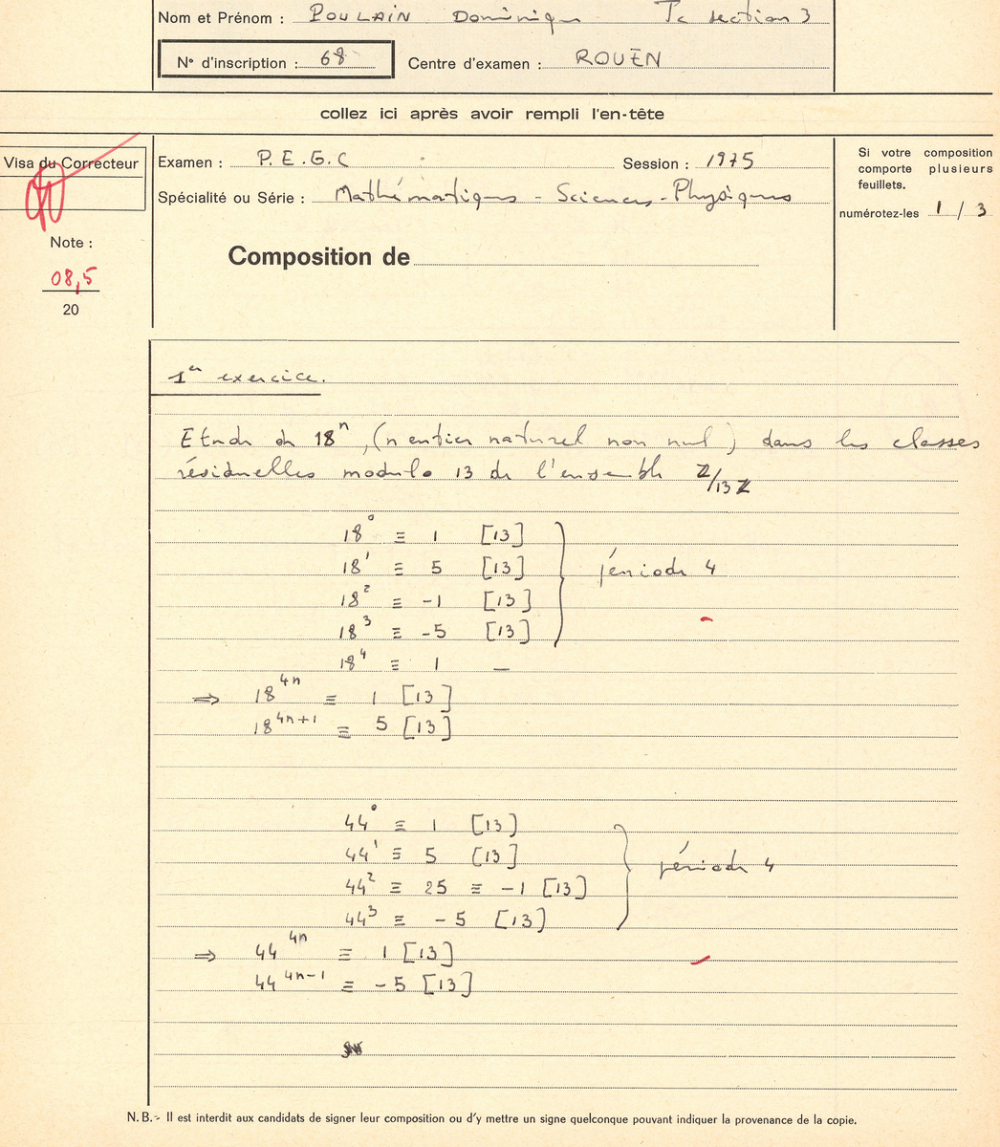 Nom et Prénom : POULAIN Dominique Tc section 3
N° d'inscription : 68
Centre d'examen : ROUEN
collez ici après avoir rempli l'en-tête
Visa du Correcteur
Note :
08,5
20
Examen : P.E.G.C
Session : 1975
Spécialité ou Série : Mathématiques - Sciences - Physiques
Composition de
Si votre composition
comporte plusieurs
feuillets.
numérotez-les 1 / 3
1er exercice.
Etude de 18^n, (n entier naturel non nul) dans les classes
résiduelles modulo 13 de l'ensemble Z/13Z
18^0 ≡ 1 [13]
18^1 ≡ 5 [13]
période 4
18^2 ≡ -1 [13]
18^3 ≡ -5 [13]
18^4 ≡ 1 —
⇒ 18^4n ≡ 1 [13]
18^4n+1 ≡ 5 [13]
44^0 ≡ 1 [13]
44^1 ≡ 5 [13]
période 4
44^2 ≡ 25 ≡ -1 [13]
44^3 ≡ -5 [13]
⇒ 44^4n ≡ 1 [13]
44^4n-1 ≡ -5 [13]
N.B.- Il est interdit aux candidats de signer leur composition ou d'y mettre un signe quelconque pouvant indiquer la provenance de la copie.